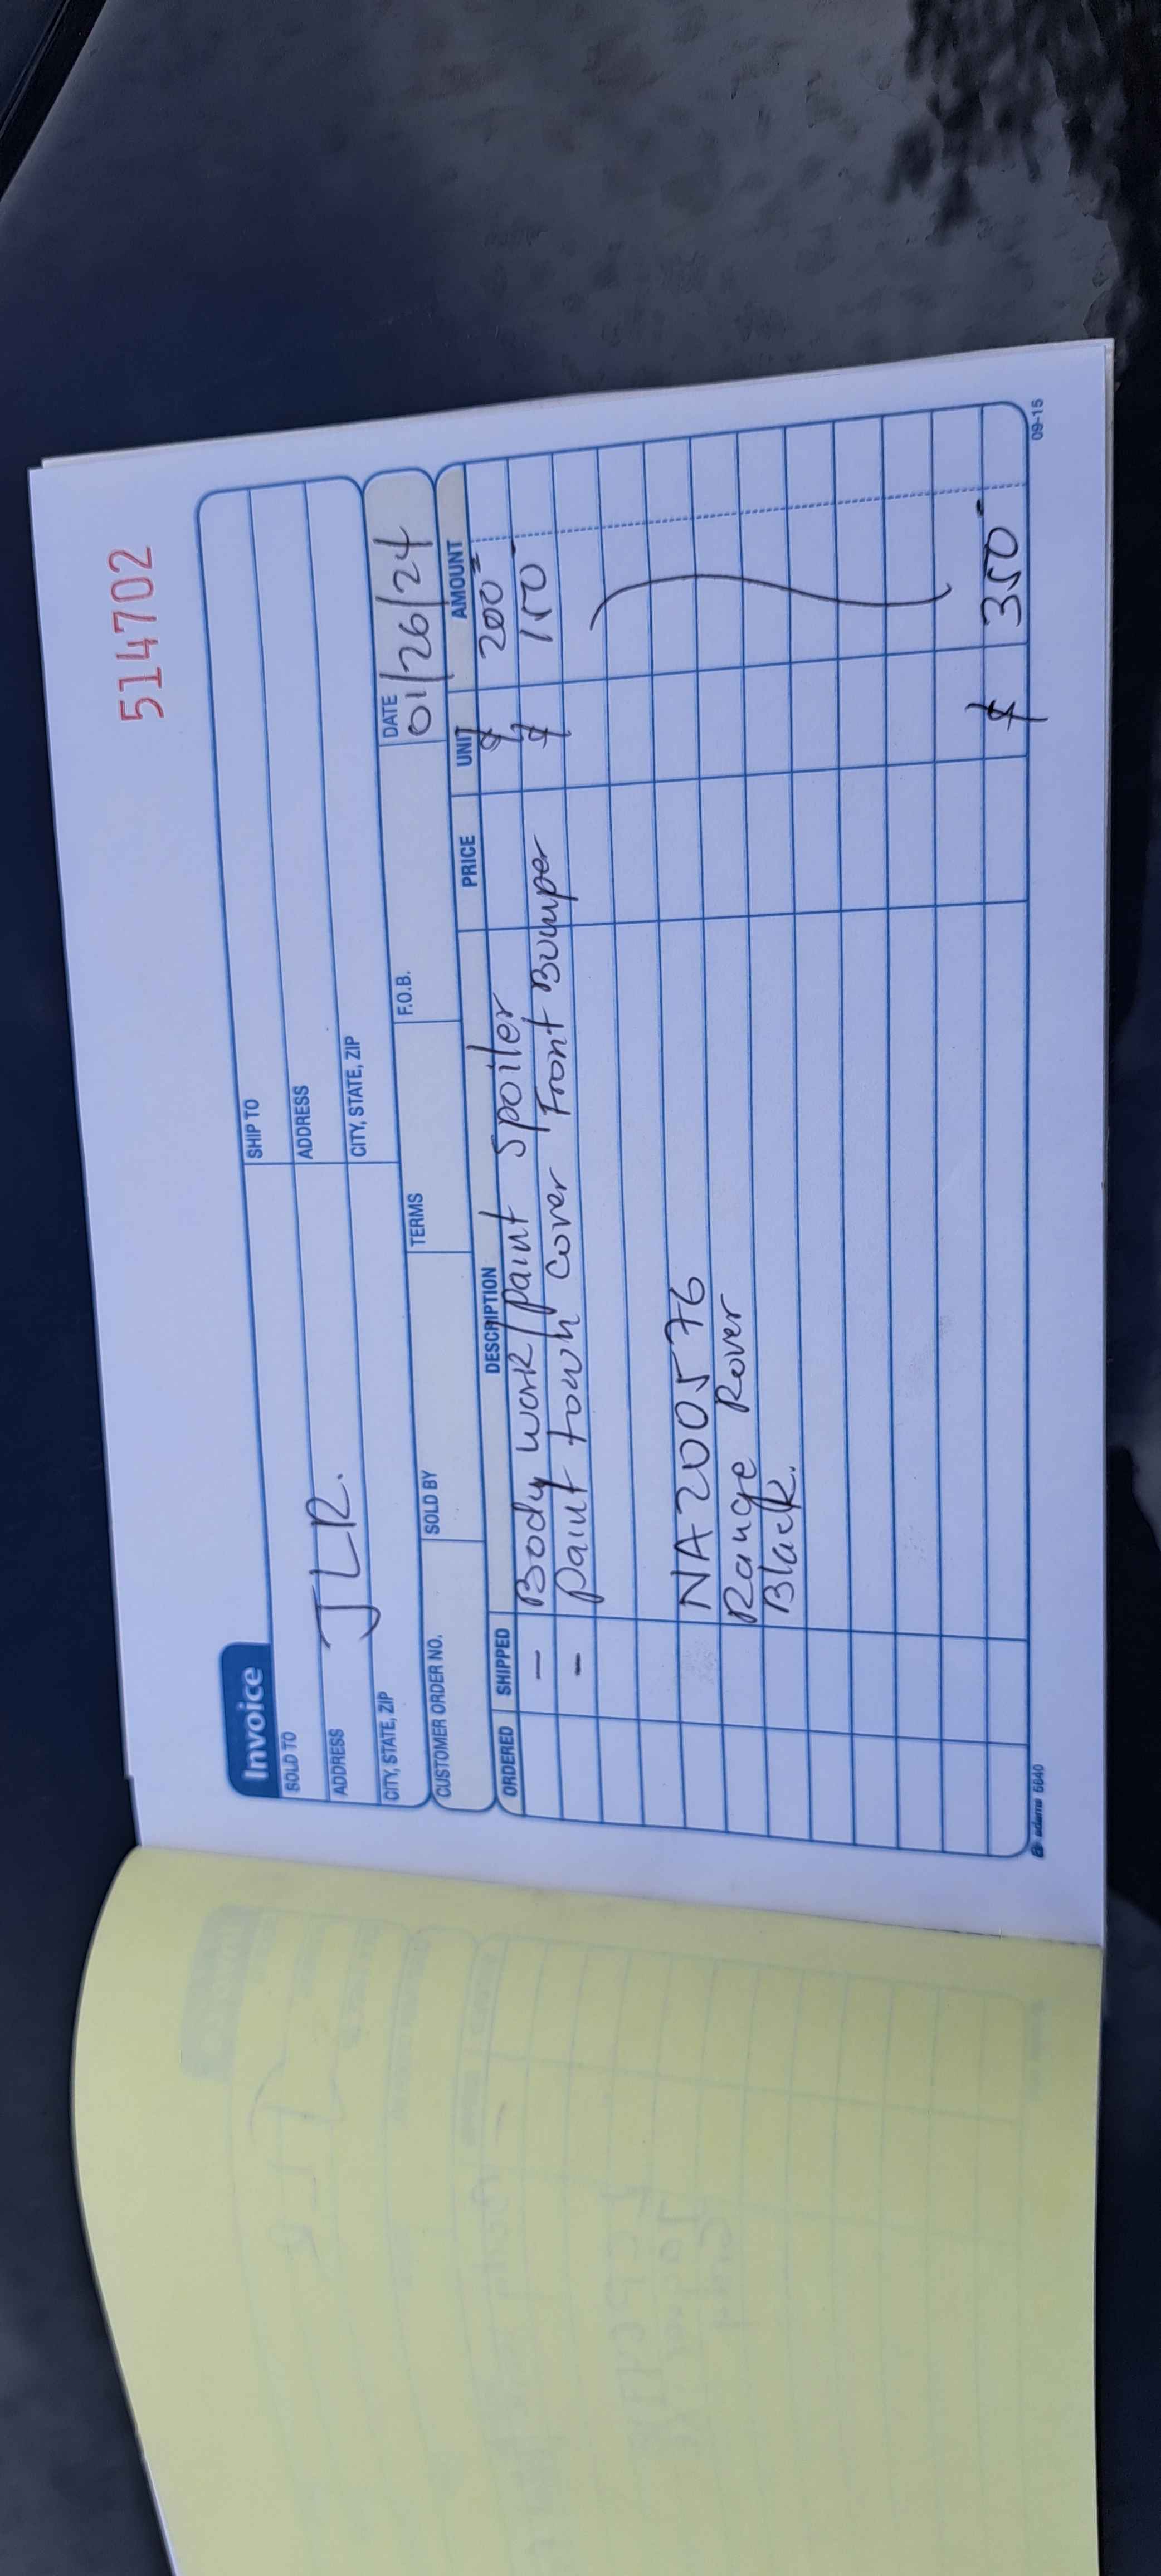 514702
Invoice
SOLD TO
SHIP TO
ADDRESS
JLR.
ADDRESS
CITY, STATE, ZIP
CITY, STATE, ZIP
CUSTOMER ORDER NO.
SOLD BY
TERMS
F.O.B.
DATE
01/26/24
ORDERED SHIPPED DESCRIPTION PRICE UNIT AMOUNT
- Body work/paint Spoiler $ 200=
- paint towh cover Front Bumper $ 150-
NA200576
Range Rover
Black.
$ 350-
adams 5840
09-15